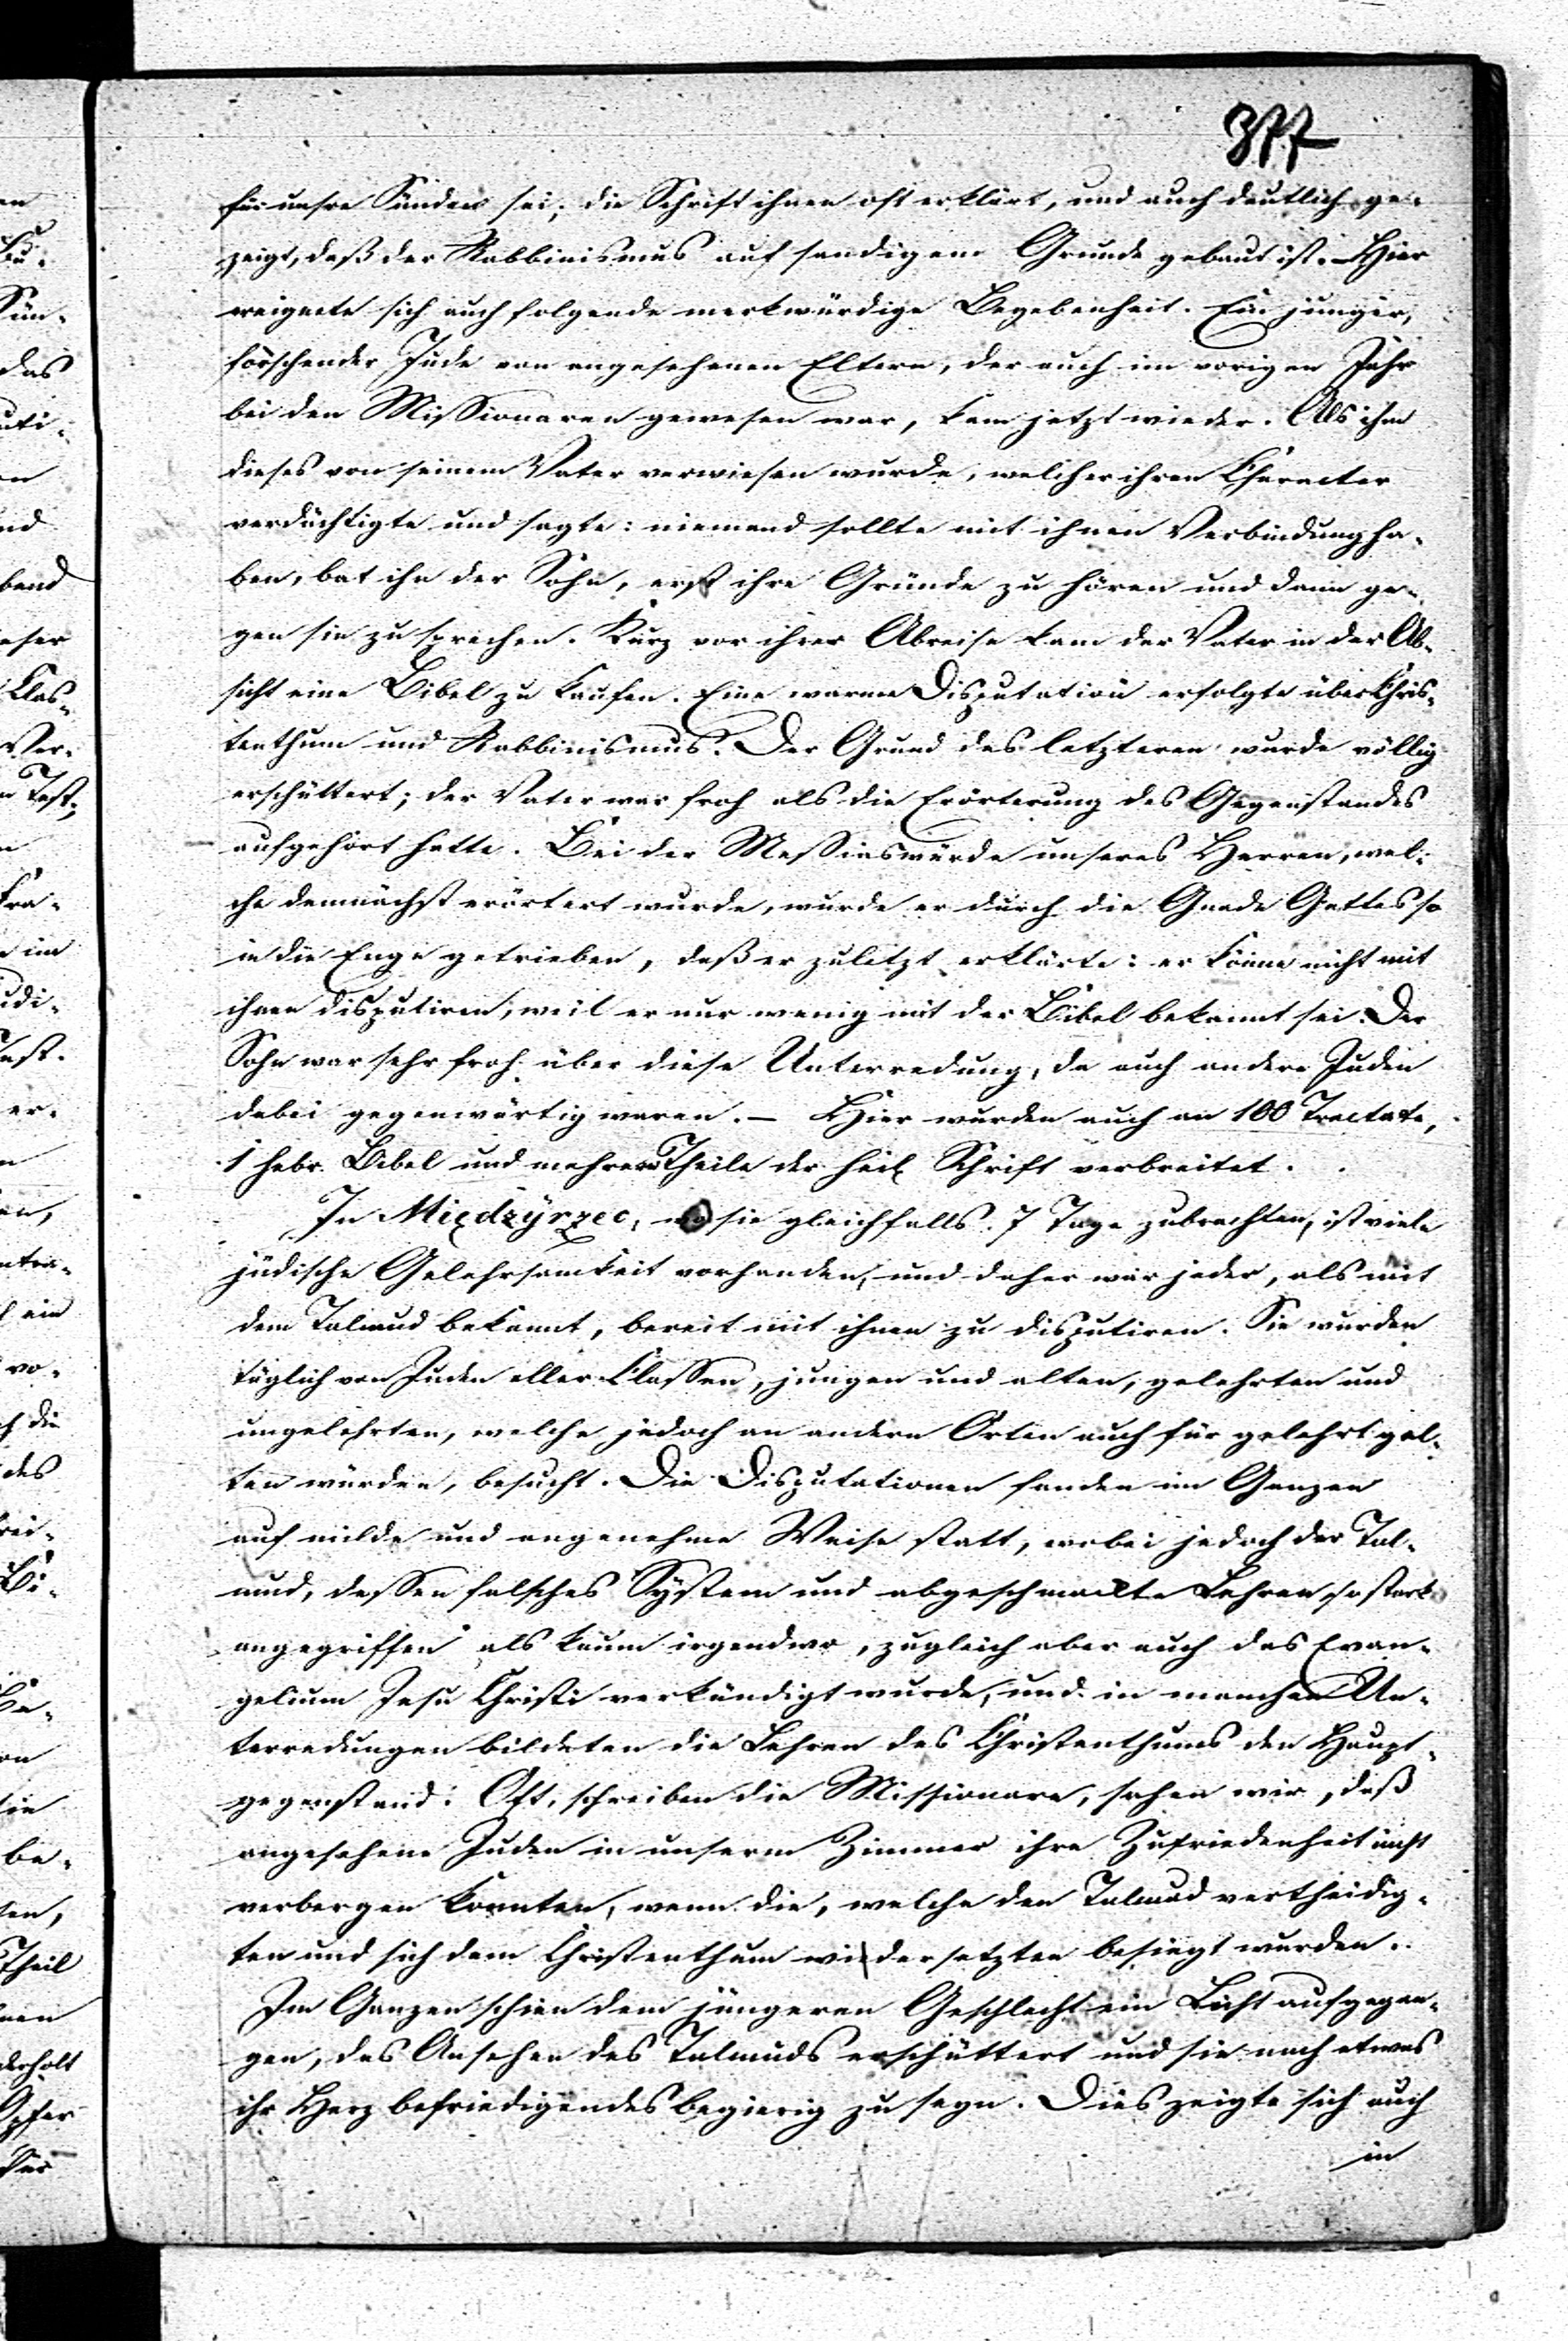 377
für unsre Sünden sei; die Schrift ihnen oft erklärt, und auch deutlich ge-
zeigt, daß der Rabbinismus auf sandigem Grunde gebaut ist. Hier
ereignete sich auch folgende merkwürdige Begebenheit. Ein junger,
forschender Jude von angesehenen Eltern, der auch im vorigen Jahr
bei den Missionaren gewesen war, kam jetzt wieder. Als ihm
dieses von seinem Vater verwiesen wurde, welcher ihren Character
verdächtigte und sagte: niemand sollte mit ihnen Verbindung ha-
ben, bat ihn der Sohn, erst ihre Gründe zu hören und dann ge-
gen sie zu sprechen. Kurz vor ihrer Abreise kam der Vater in der Ab-
sicht eine Bibel zu kaufen. Eine warme Disputation erfolgte über Chris-
tenthum und Rabbinismus. Der Grund des letzteren wurde völlig
erschüttert; der Vater war froh als die Erörterung des Gegenstandes
aufgehört hatte. Bei der Messiaswürde unseres Herren, wel-
che demnächst erörtert wurde, wurde er durch die Gnade Gottes so
in die Enge getrieben, daß er zuletzt erklärte: er könne nicht mit
ihnen disputiren, weil er nur wenig mit der Bibel bekannt sei. Der
Sohn war sehr froh über diese Unterredung, da auch andere Juden
dabei gegenwärtig waren. — Hier wurden auch an 100 Tractate,
1 hebr. Bibel und mehrere Theile der heil Schrift verbreitet.
In Międzyrzec, wo sie gleichfalls 7 Tage zubrachten, ist viele
jüdische Gelehrsamkeit vorhanden, und daher war jeder, als mit
dem Talmud bekannt, bereit mit ihnen zu disputiren. Sie wurden
täglich von Juden aller Classen, jungen und alten, gelehrten und
ungelehrten, welche jedoch an andern Orten auch für gelehrt gel-
ten würden, besucht. Die Disputationen fanden im Ganzen
auf milde und angenehme Weise statt, wobei jedoch der Tal-
mud, dessen falsches System und abgeschmackte Lehren so stark
angegriffen als kaum irgendwo, zugleich aber auch das Evan-
gelium Jesu Christi verkündigt wurde, und in manchen Un-
terredungen bildeten die Lehren des Christenthums den Haupt-
gegenstand. Oft, schreiben die Missionare, sahen wir, daß
angesehene Juden in unserm Zimmer ihre Zufriedenheit nicht
verbergen konnten, wenn die, welche den Talmud vertheidig-
ten und sich dem Christenthum wiedersetzten besiegt wurden.
Im Ganzen schien dem jüngeren Geschlecht ein Licht aufgegan-
gen, das Ansehen des Talmuds erschüttert und sie nach etwas
ihr Herz befriedigendes begierig zu seyn. Dies zeigte sich auch
in